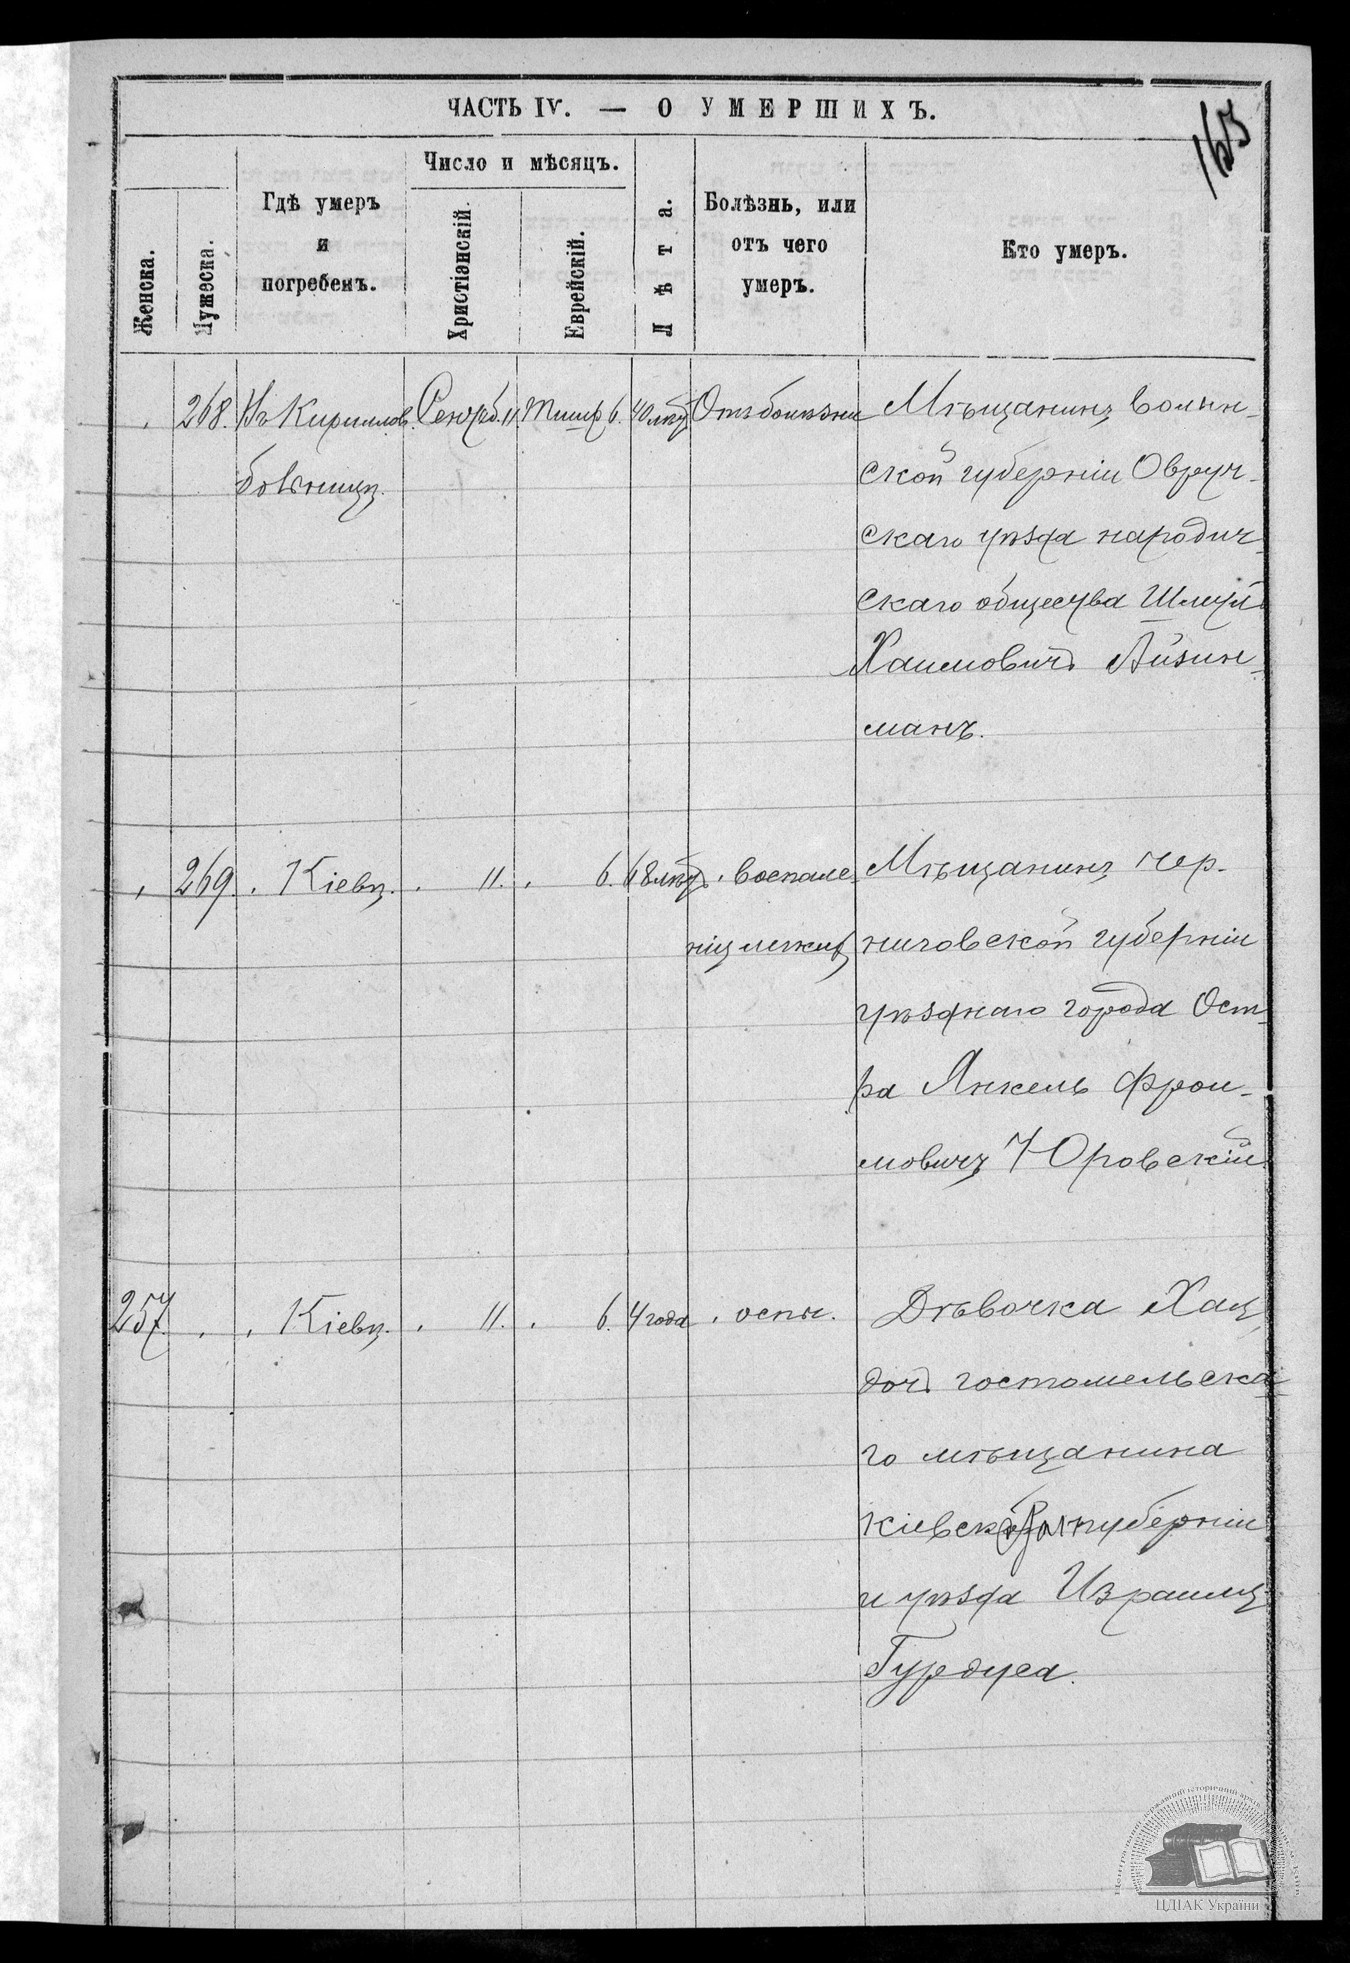 ЧАСТЬ IV. — О УМЕРШИХЪ.
165
Женска.
Мужеска.
Гдѣ умеръ
и
погребенъ.
Число и мѣсяцъ.
Христіанскій.
Еврейскій.
Лѣта.
Болѣзнь, или
отъ чего
умеръ.
Кто умеръ.
268. Въ Кириллов. Сентяб. 11 Тишр 6. 40 лѣтъ Отъ болѣзни Мѣщанинъ волын-
больницѣ. ской губерніи Овруч-
скаго уѣзда народич-
скаго общества Шмуль
Хаимовичъ Айзин-
манъ.
269. Кіевѣ. 11. 6. 68 лѣтъ воспале- Мѣщанинъ чер-
нія легкихъ ниговской губерніи
уѣзднаго города Ост-
ра Янкель Фрои-
мовичъ Юровскій
257. Кіевѣ. 11. 6. 4 года оспы. Дѣвочка Хая
дочь гостомельска-
го мѣщанина
Кіевской губерніи
и уѣзда Израиля
Гурдуса.
ЦДІАК України